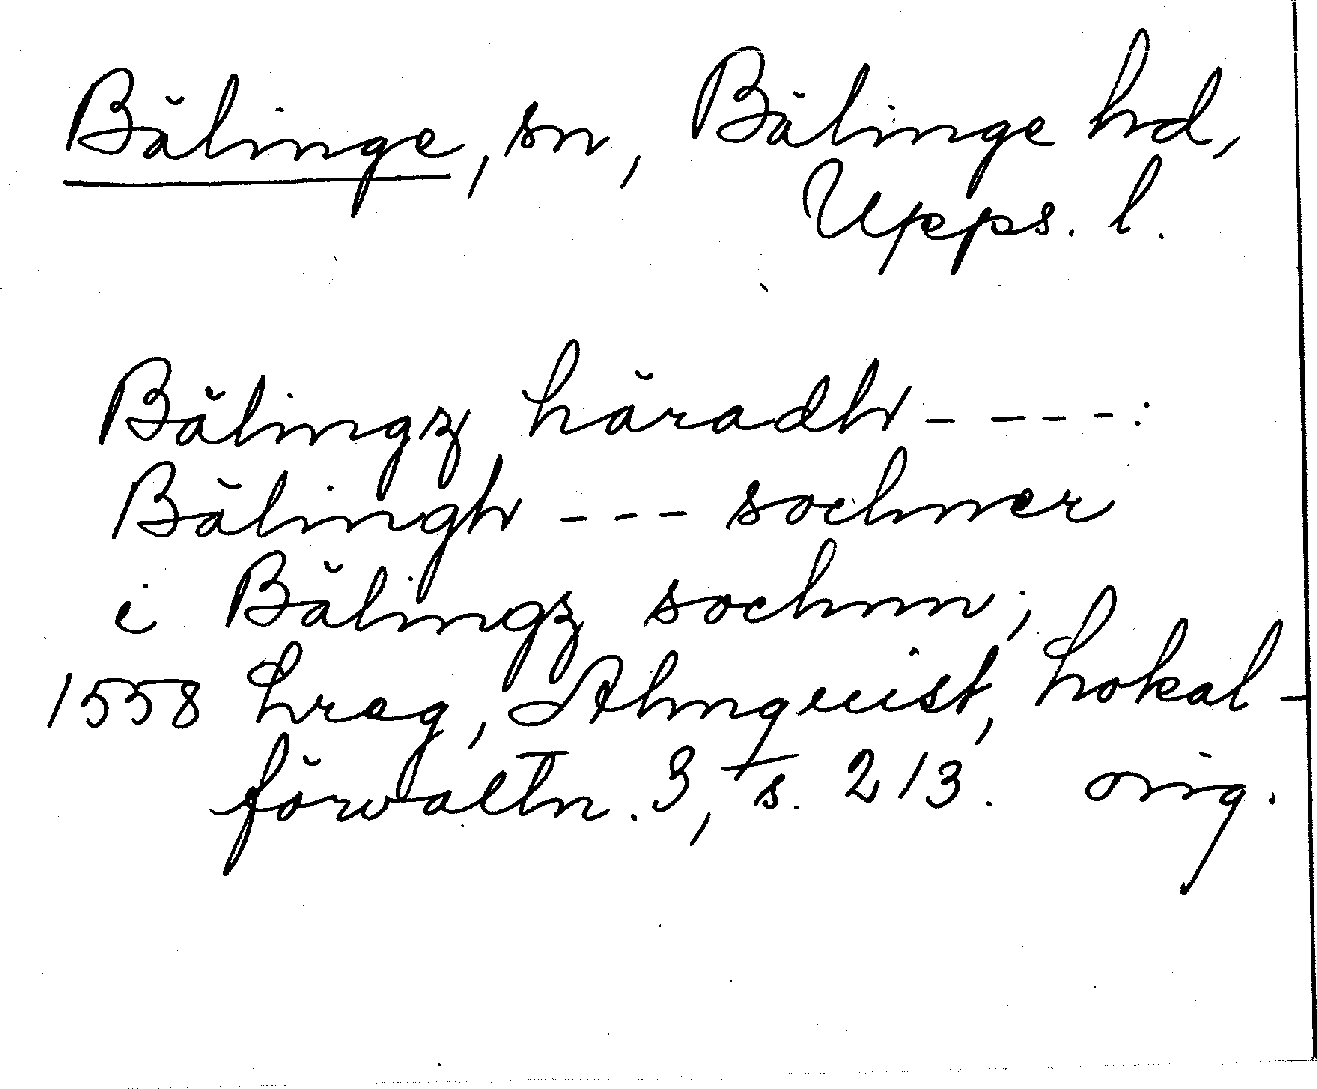 Bälinge, sn, Bälinge hd,
Upps. l.
Bälingz häradh - - - - :
Bälingh - - - sochner
i Bälingz sochnn;
1558 hreg, Almquist, Lokal-
förvaltn. 3, s. 213. orig.